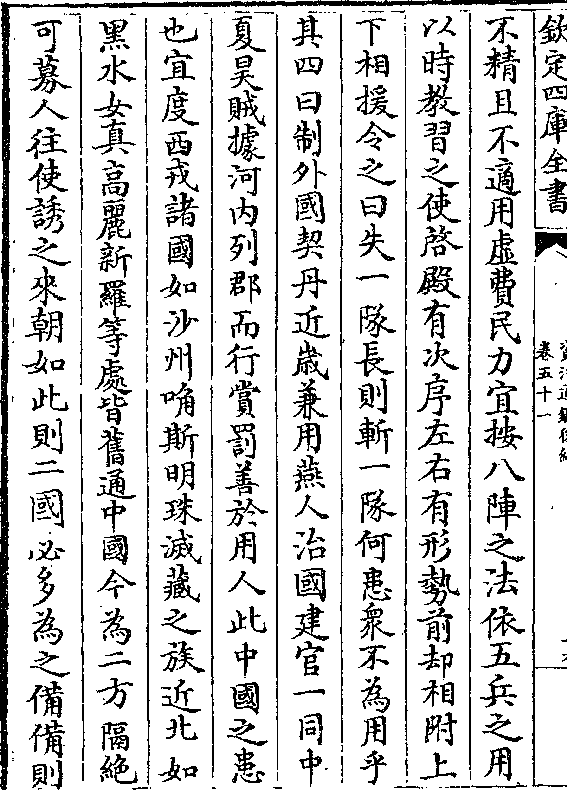 欽定四庫全書
卷五十一
不精且不適用虚費民力宜按八陣之法依五兵之用
以時教習之使啓殿有次序左右有形勢前却相附上
下相援令之曰失一隊長則斬一隊何患衆不為用乎
其四曰制外國契丹近歲兼用燕人治國建官一同中
夏昊賊據河內列郡而行賞罰善於用人此中國之患
也宜度西戎諸國如沙州唃斯明珠滅藏之族近北如
黑水女真高麗新羅等處皆舊通中國今為二方隔絶
可募人往使誘之來朝如此則二國必多為之備備則